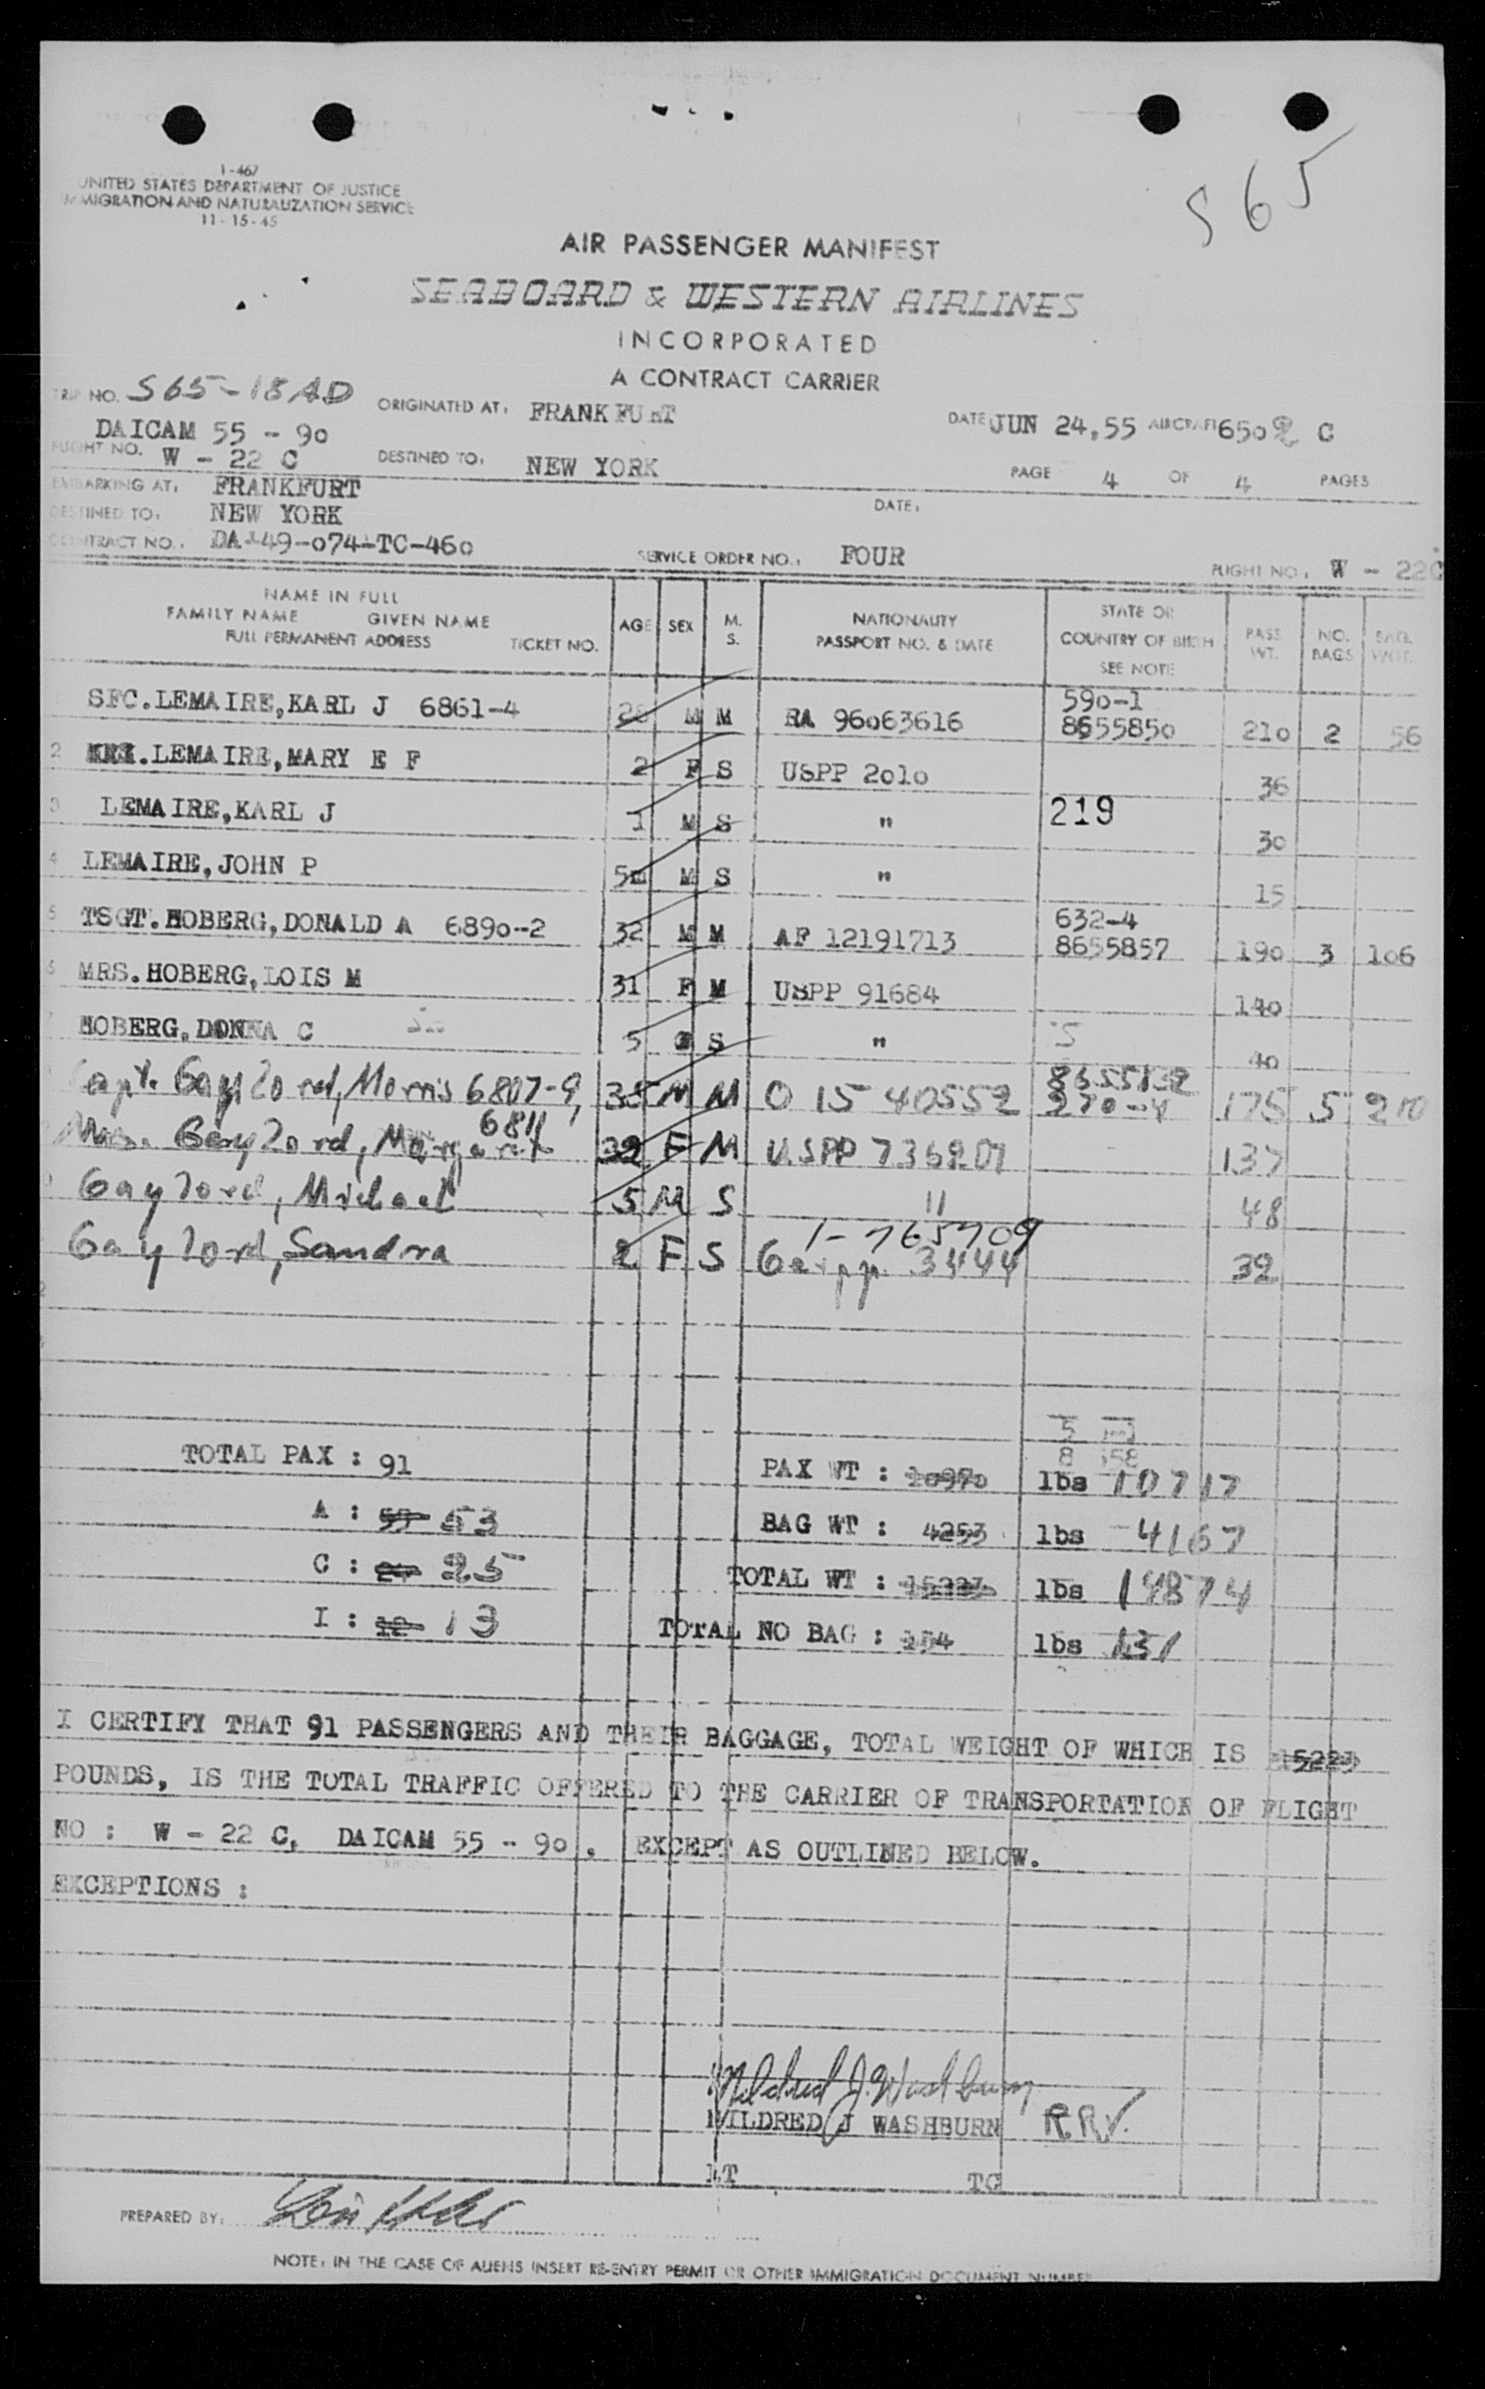 S65
I-467
UNITED STATES DEPARTMENT OF JUSTICE
IMMIGRATION AND NATURALIZATION SERVICE
11-15-45
AIR PASSENGER MANIFEST
SEABOARD & WESTERN AIRLINES
INCORPORATED
A CONTRACT CARRIER
TRIP NO. S65-18AD ORIGINATED AT: FRANKFURT DATE JUN 24,55 AIRCRAFT 6502 C
DAICAM 55 - 90
FLIGHT NO. W - 22 C DESTINED TO: NEW YORK PAGE 4 OF 4 PAGES
EMBARKING AT: FRANKFURT DATE:
DESTINED TO: NEW YORK
CONTRACT NO.: DA-49-074-TC-460 SERVICE ORDER NO.: FOUR FLIGHT NO. W - 22C
NAME IN FULL
FAMILY NAME GIVEN NAME
FULL PERMANENT ADDRESS TICKET NO. AGE SEX M. S. NATIONALITY PASSPORT NO. & DATE STATE OR COUNTRY OF BIRTH SEE NOTE PASS. WT. NO. BAGS BAG. WGT.
590-1
SFC.LEMAIRE,KARL J 6861-4 28 M M RA 96063616 8655850 210 2 56
2 .LEMAIRE,MARY E F 2 F S USPP 2010 36
3 LEMAIRE,KARL J 1 M S " 219 30
4 LEMAIRE,JOHN P 5m M S " 15
632-4
5 TSGT.HOBERG,DONALD A 6890-2 32 M M AF 12191713 8655857 190 3 106
6 MRS.HOBERG,LOIS M 31 F M USPP 91684 140
7 HOBERG,DONNA C 5 S " 40
8655132
Capt. Gaylord, Morris 6807-9, 35 M M O 15 40552 270-4 175 5 210
6811
Mrs. Gaylord, Margaret 32 F M USPP 736207 137
Gaylord, Michael 5 M S " 48
1-765709
Gaylord, Sandra 2 F S Ger pp. 3444 32
TOTAL PAX : 91 PAX WT : 10970 lbs 10717
A : 53 BAG WT : 4253 lbs 4167
C : 25 TOTAL WT : 15223 lbs 14874
I : 12 13 TOTAL NO BAG : 134 lbs 131
I CERTIFY THAT 91 PASSENGERS AND THEIR BAGGAGE, TOTAL WEIGHT OF WHICH IS 15223
POUNDS, IS THE TOTAL TRAFFIC OFFERED TO THE CARRIER OF TRANSPORTATION OF FLIGHT
NO : W - 22 C, DAICAM 55 - 90 , EXCEPT AS OUTLINED BELOW.
EXCEPTIONS :
Mildred J. Washburn
MILDRED J WASHBURN RRV.
LT TC
PREPARED BY:
NOTE: IN THE CASE OF ALIENS INSERT RE-ENTRY PERMIT OR OTHER IMMIGRATION DOCUMENT NUMBER